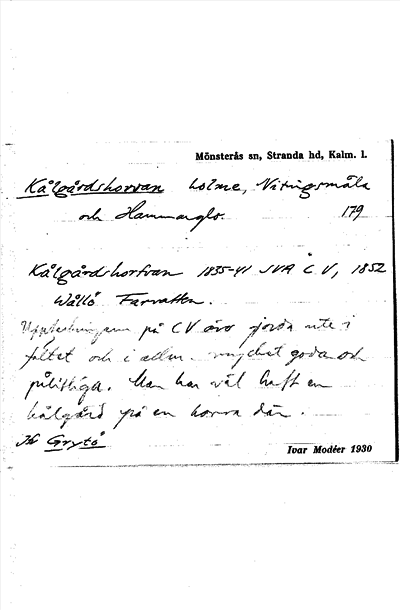 Mönsterås sn, Stranda hd, Kalm. l.
Kålgårdshorvan holme, Nötingsmåla
och Hammarglo. 179
Kålgårdshorfvan 1835-41 SVA C V, 1852
Wållö Farvatten.
på CV äro gjorda ute i
fältet och i allm. mycket goda och
pålitliga. Man har väl haft en
kålgård på en horva där.
Jfr Grytö
Ivar Modéer 1930